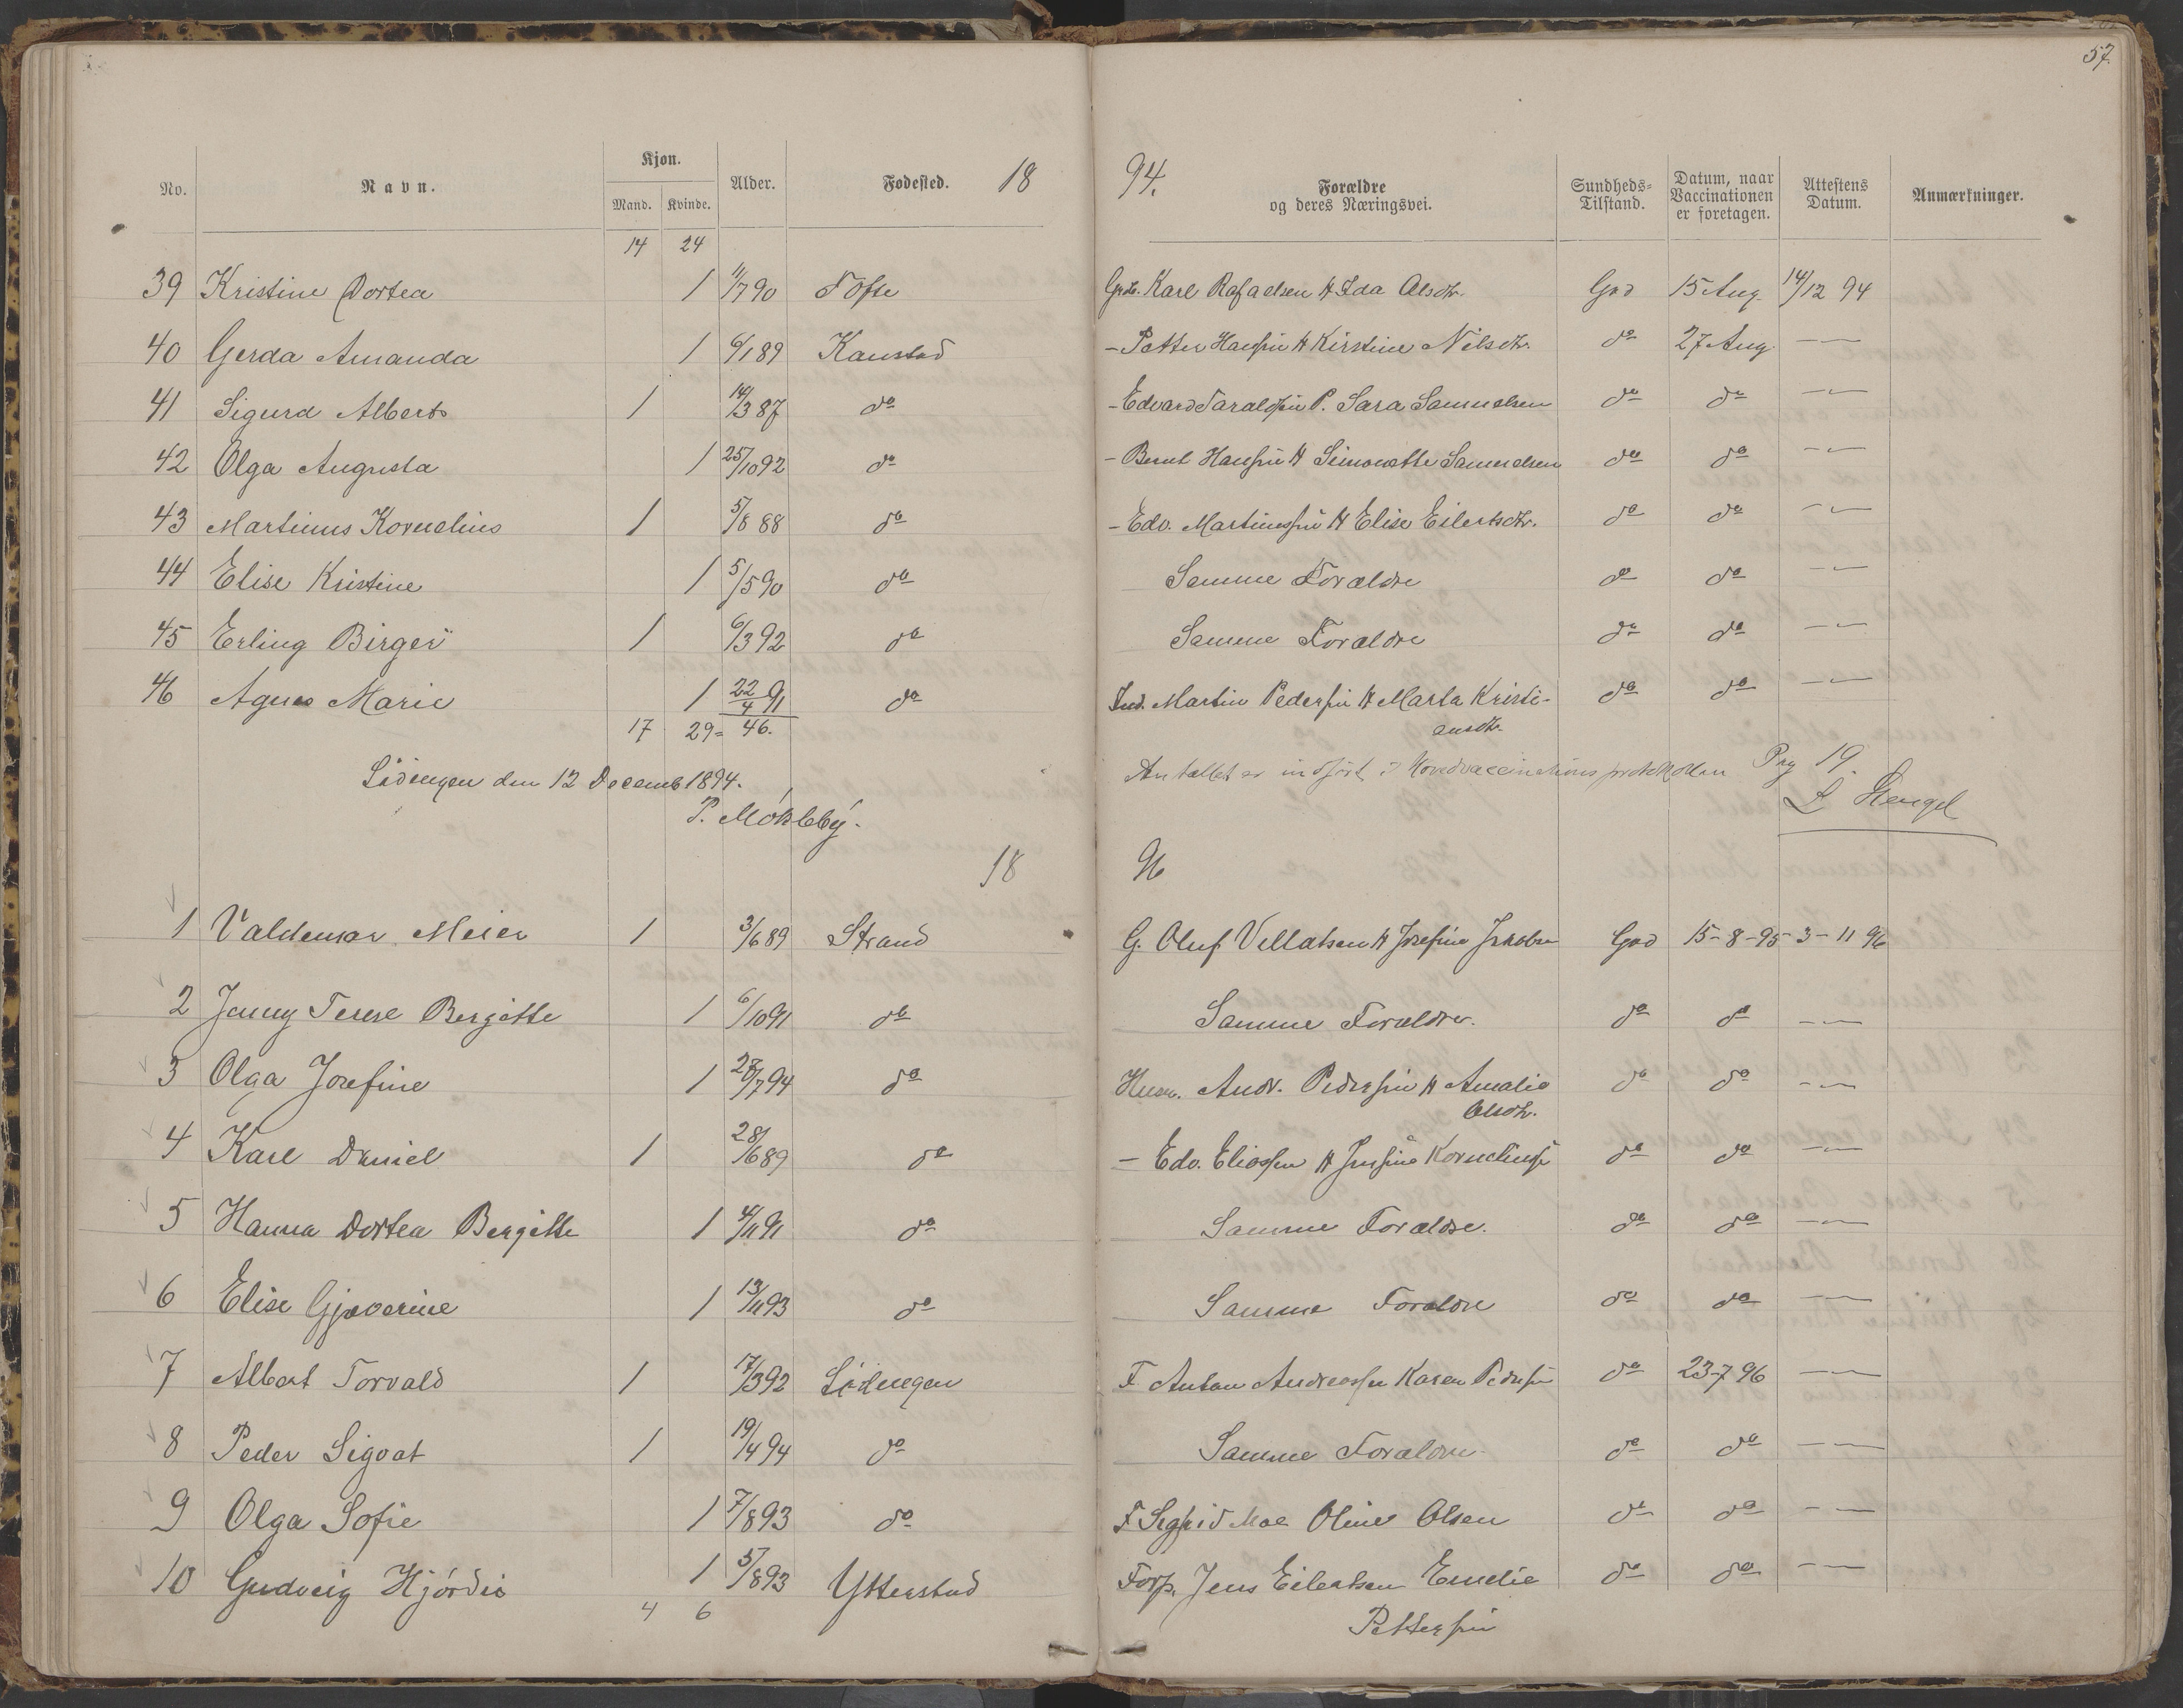 57.
No. Navn. Kjøn. Mand. Kvinde. Alder. Fodested. 18 94. Forældre og deres Næringsvei. Sundheds-Tilstand. Datum, naar Vaccinationen er foretagen. Attestens Datum. Anmærkninger.
14 24
39 Kristine Dortea 1 11/7 90 Grdb. Karl Rafaelsen & Ida Olsdtr. God 15 Aug. 14/12 94
40 Gerda Amanda 1 6/1 89 Kanstad - Petter Hansen & Kirstine Nilsdtr. do 27 Aug. — —
41 Sigurd Alberts 1 14/3 87 do - Edvard Taraldsen P. Sara Samuelsen do do — —
42 Olga Augusta 1 25/10 92 do - Bernt Hansen & Simonette Samuelsen do do — —
43 Martinus Kornelius 1 5/8 88 do - Edv. Martinussen & Elise Eilertsdtr. do do — —
44 Elise Kristine 1 5/5 90 do Samme Forældre do do — —
45 Erling Birger 1 6/3 92 do Samme Forældre do do — —
46 Agnes Marie 1 22/4 91 do Ind. Martin Pedersen & Marta Kristi-
ansdtr. do do — —
17 29 = 46.
Lödingen den 12 Decemb 1894.
P. Möklebÿ.
Antallet er indført i Hovedvaccinationsprotokollen Pag 19.
18 96
1 Valdemar Meier 1 3/6 89 Strand G. Oluf Vellatsen & Josefine Jakobsen God 15-8-95 3-11 96
2 Jenny Terese Bergitte 1 6/10 91 do Samme Forældre. do do — —
3 Olga Josefine 1 28/7 94 do Husm. Andr. Pedersen & Amalie
Olsdtr. do do — —
4 Karl Daniel 1 28/6 89 do - Edv. Eliassen & Korneliuss do do — —
5 Hanna Dortea Bergitte 1 4/11 91 do Samme Forældre. do do — —
6 Elise Gjæverine 1 13/11 93 do Samme Forældre do do — —
7 Albert Torvald 1 17/3 92 Lödingen F Anton Andreassen Karen Pedersen do 23-7 96 — —
8 Peder Sigvat 1 19/4 94 do Samme Forældre do do — —
9 Olga Sofie 1 7/8 93 do F Sigfrid Moe Oline Olsen do do — —
10 Gudveig Hjördis 1 5/8 93 Ytterstad Forp. Jens Eilertsen Emelie
Pettersen do do — —
4 6